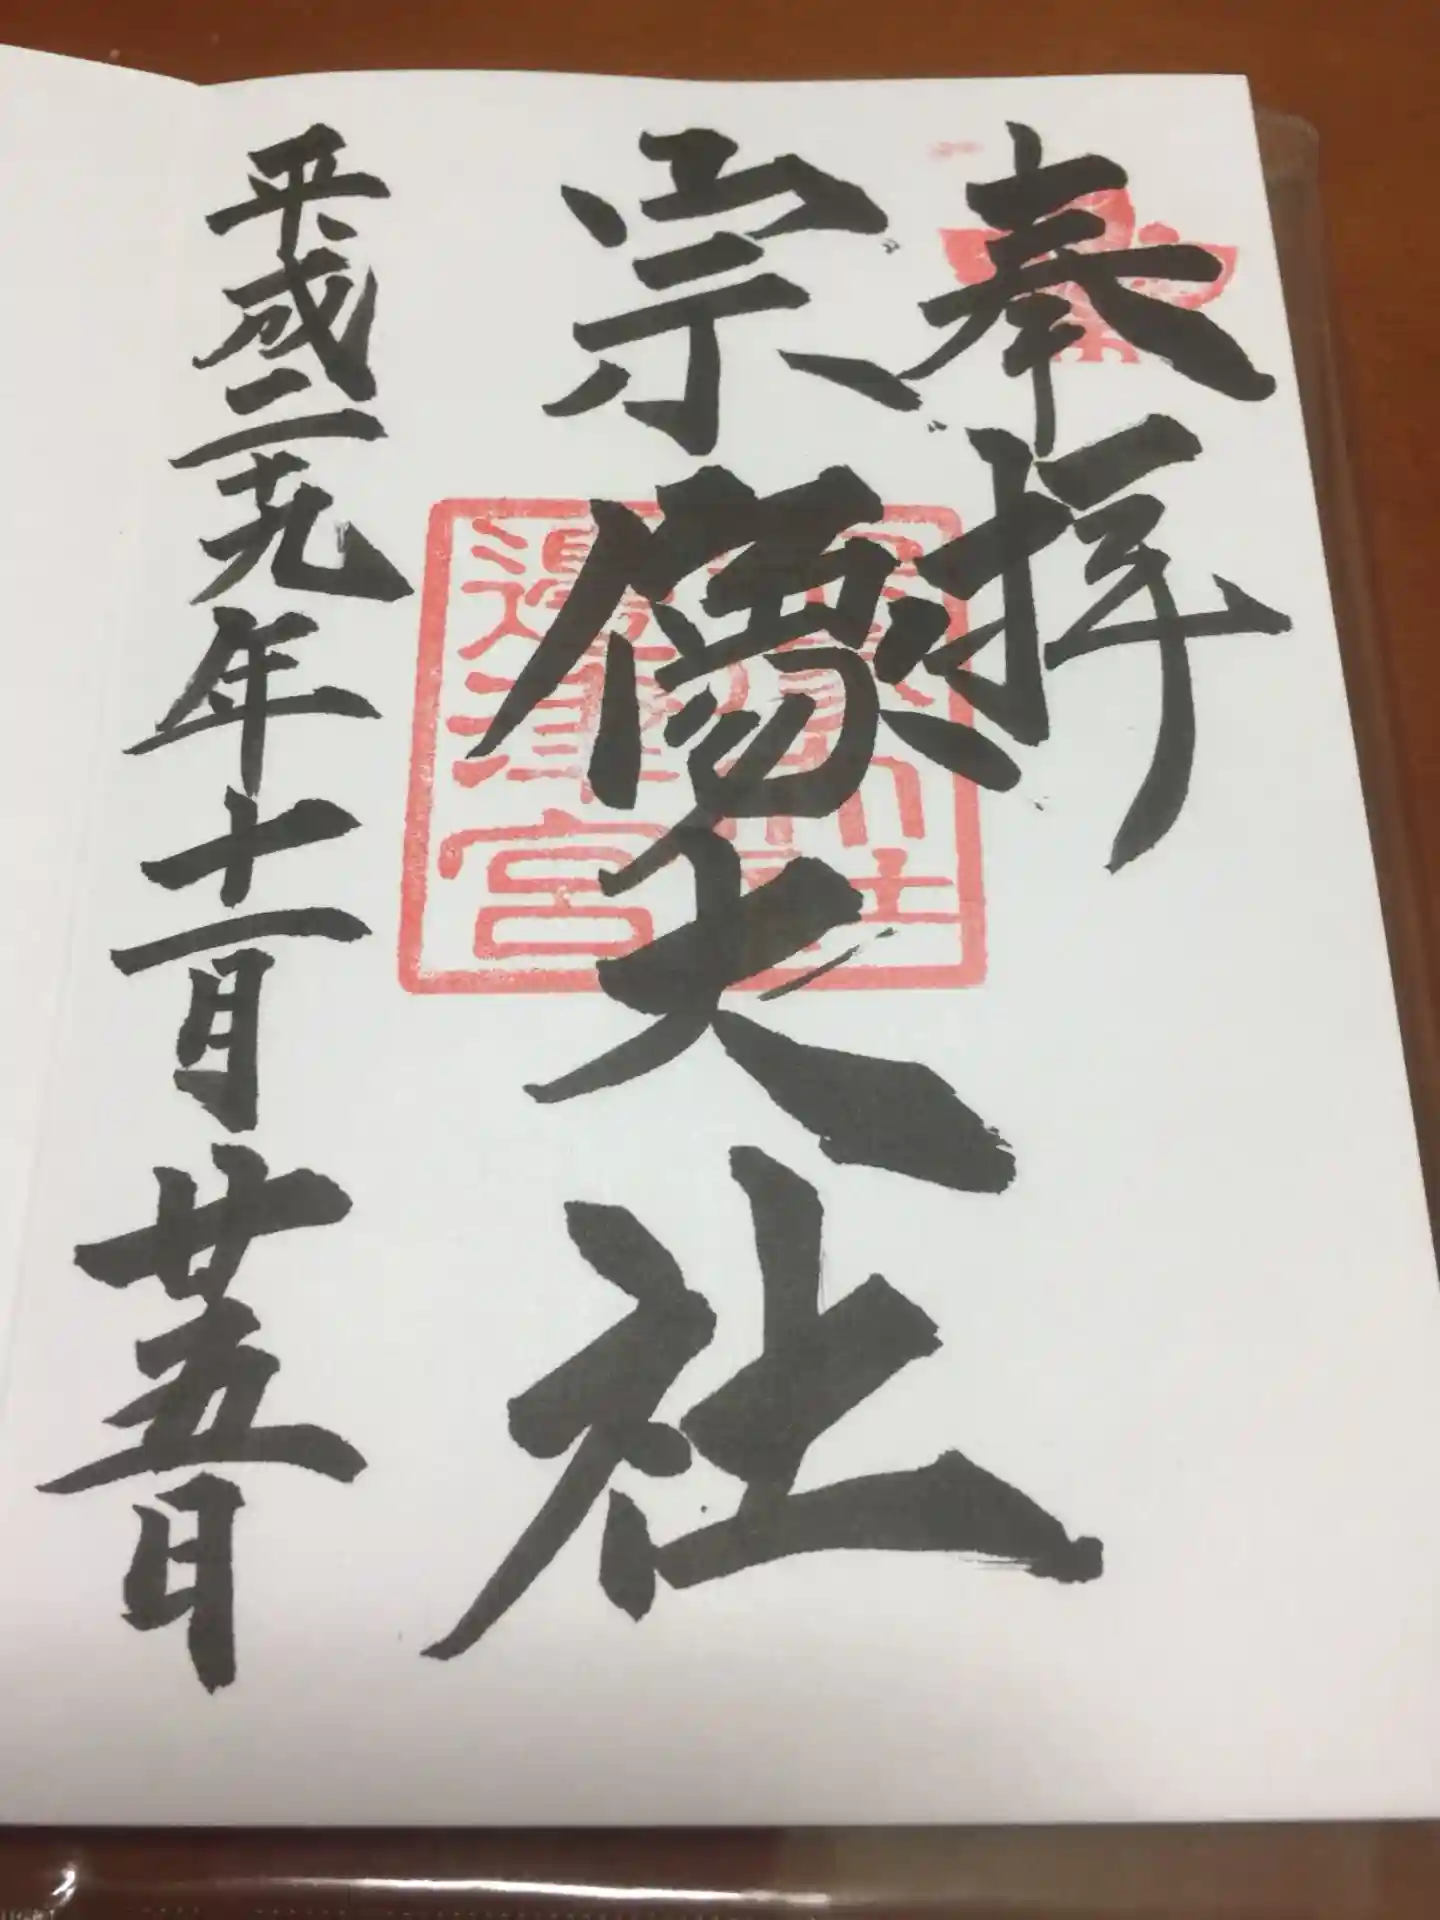 奉拝
宗像大社
邊津宮
平成二十九年十一月廿五日